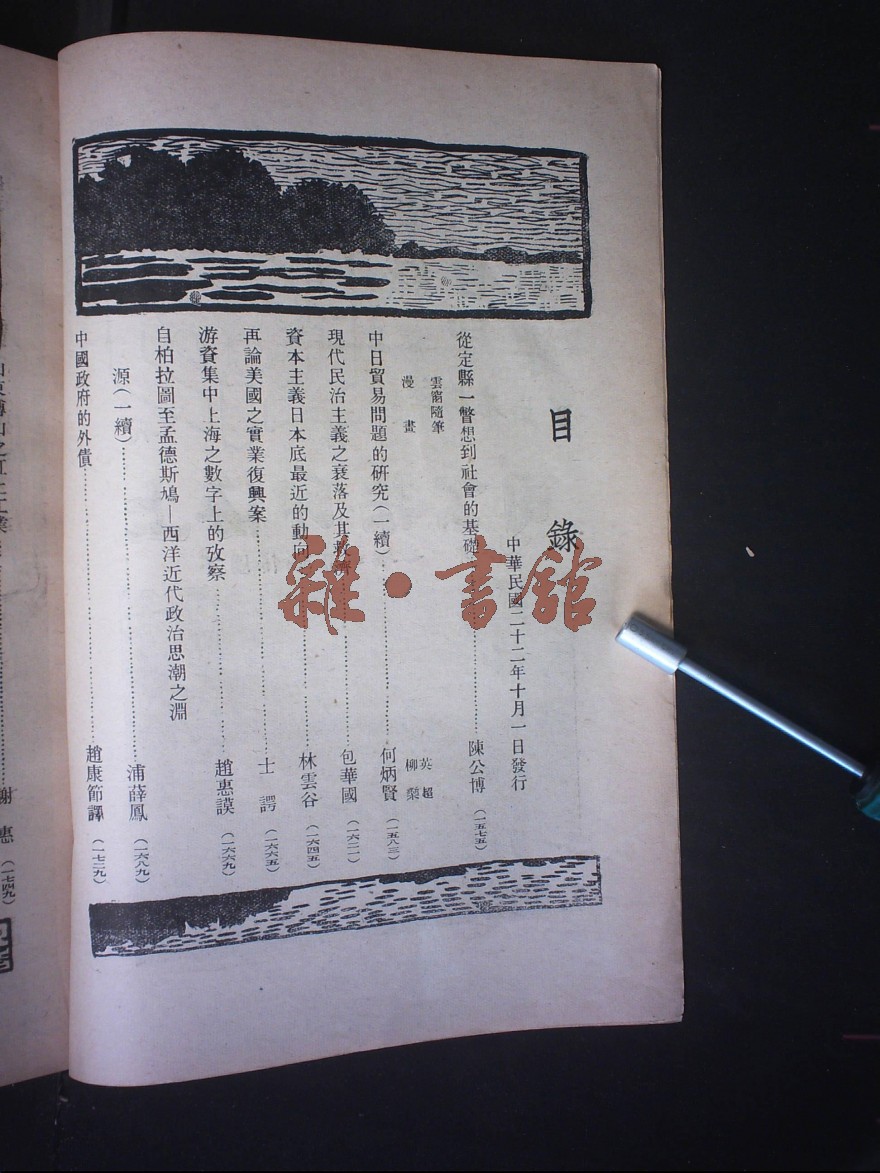 目錄
中華民國二十二年十月一日發行
從定縣一瞥想到社會的基礎…………陳公博（一五七五）
雲窗隨筆 英超
漫畫 柳槃
中日貿易問題的研究（一續）…………何炳賢（一五八三）
現代民治主義之衰落及其救濟…………包華國（一六二一）
資本主義日本底最近的動向…………林雲谷（一六四五）
再論美國之實業復興案…………士諤（一六六五）
游資集中上海之數字上的攷察…………趙惠謨（一六六九）
自柏拉圖至孟德斯鳩—西洋近代政治思潮之淵
源（一續）…………浦薛鳳（一六八九）
中國政府的外債…………趙康節譯（一七二九）
謝惠（一七四九）
雜·書館